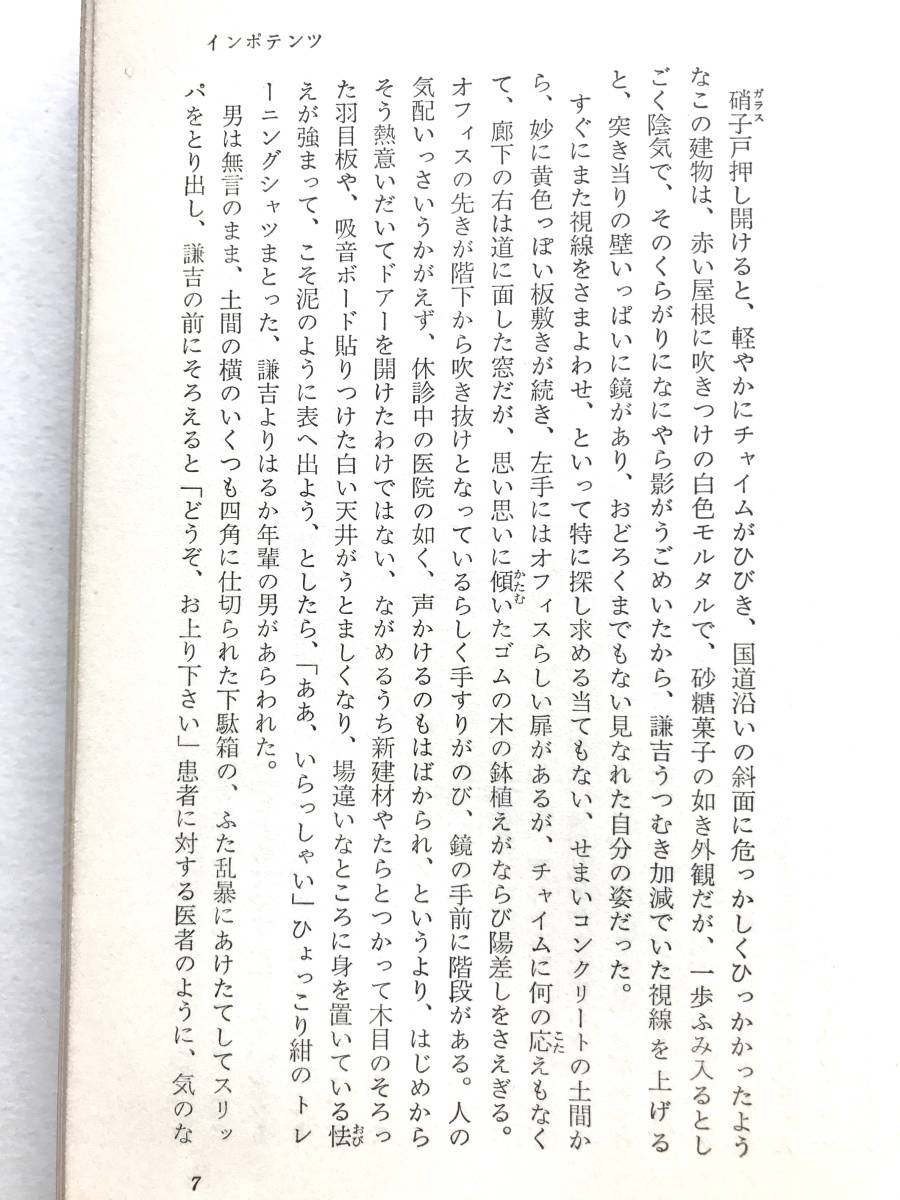 インポテンツ
硝子戸押し開けると、軽やかにチャイムがひびき、国道沿いの斜面に危っかしくひっかかったよう
なこの建物は、赤い屋根に吹きつけの白色モルタルで、砂糖菓子の如き外観だが、一歩ふみ入るとし
ごく陰気で、そのくらがりになにやら影がうごめいたから、謙吉うつむき加減でいた視線を上げる
と、突き当りの壁いっぱいに鏡があり、おどろくまでもない見なれた自分の姿だった。
すぐにまた視線をさまよわせ、といって特に探し求める当てもない、せまいコンクリートの土間か
ら、妙に黄色っぽい板敷きが続き、左手にはオフィスらしい扉があるが、チャイムに何の応えもなく
て、廊下の右は道に面した窓だが、思い思いに傾いたゴムの木の鉢植えがならび陽差しをさえぎる。
オフィスの先きが階下から吹き抜けとなっているらしく手すりがのび、鏡の手前に階段がある。人の
気配いっさいうかがえず、休診中の医院の如く、声かけるのもはばかられ、というより、はじめから
そう熱意いだいてドアーを開けたわけではない、ながめるうち新建材やたらとつかって木目のそろっ
た羽目板や、吸音ボード貼りつけた白い天井がうとましくなり、場違いなところに身を置いている怯
えが強まって、こそ泥のように表へ出よう、としたら、「ああ、いらっしゃい」ひょっこり紺のトレ
ーニングシャツまとった、謙吉よりはるか年輩の男があらわれた。
男は無言のまま、土間の横のいくつも四角に仕切られた下駄箱の、ふた乱暴にあけたてしてスリッ
パをとり出し、謙吉の前にそろえると「どうぞ、お上り下さい」患者に対する医者のように、気のな
7